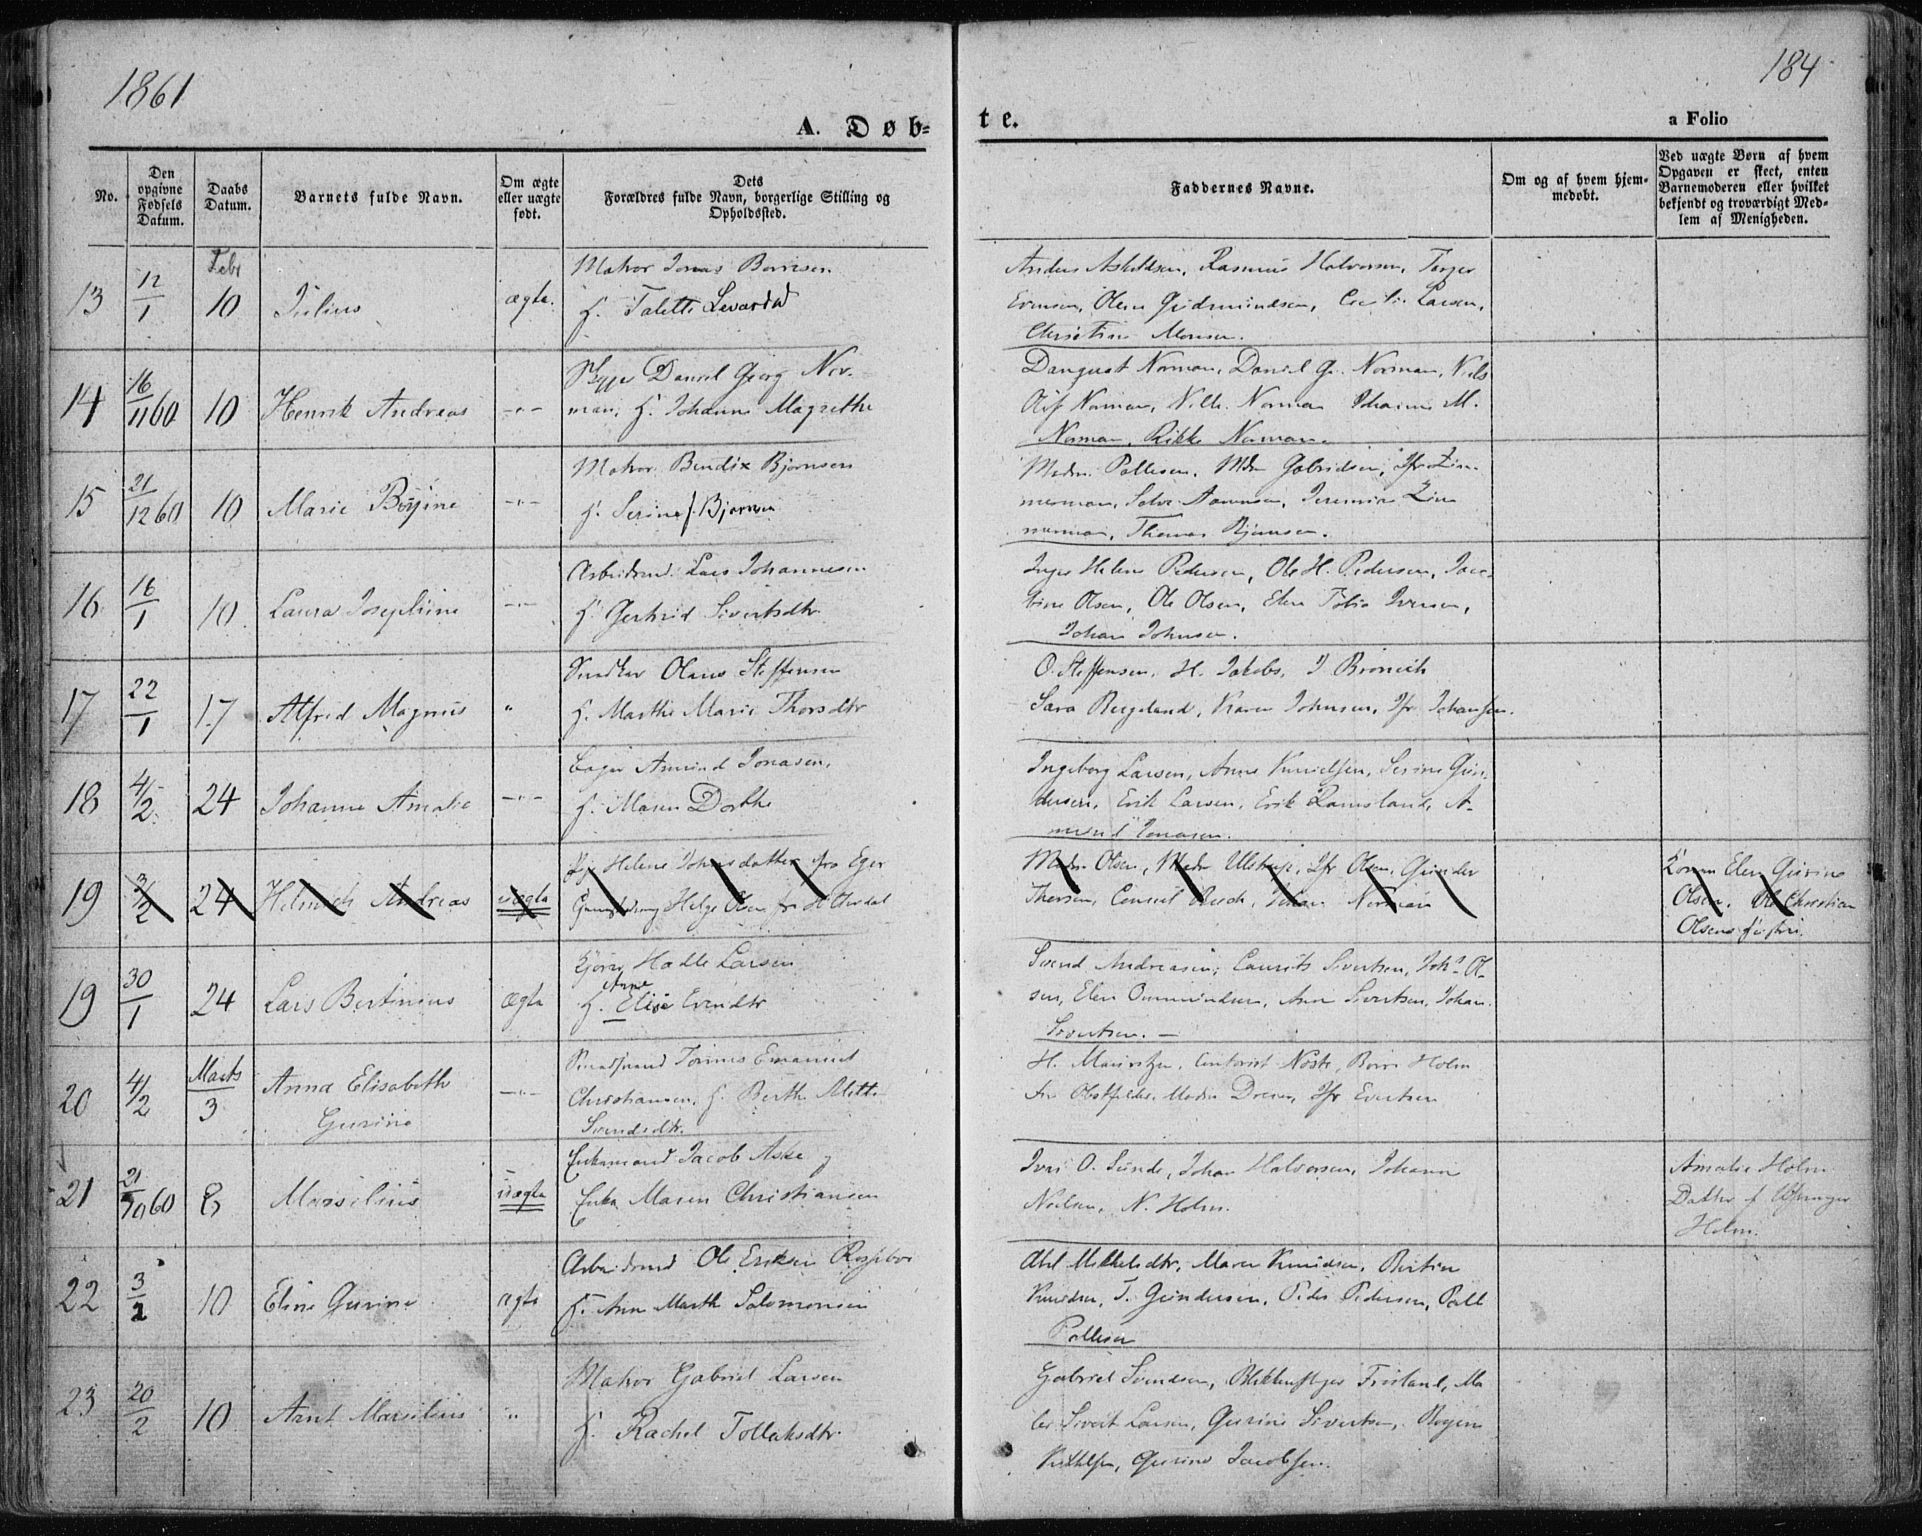 1861
184
A. Døb-
te.
a Folio
No.
Den opgivne Fødsels Datum.
Daabs Datum.
Barnets fulde Navn.
Om ægte eller uægte født.
Dets Forældres fulde Navn, borgerlige Stilling og Opholdssted.
Faddernes Navne.
Om og af hvem hjemmedøbt.
Ved uægte Børn af hvem
Opgaven er skeet, enten
Barnemoderen eller hvilket
bekjendt og troværdigt Med-
lem af Menigheden.
Febr
13 12/1 10 Julius ægte.
Jonas
h. Talette Levardsd
Rasmus Halvorsen,
Evensen, Olene Gudmundsen, Larsen,
Christine Monsen.
14 16/11 60 10 Henrik Andreas -"-
Daniel Georg Nor-
man, h. Johanne Magrethe
Danquart Norman, Daniel G. Norman, Niels
Norman, Vilh. Norman Johanne M.
Norman, Rikke Norman
15 21/12 60 10 Marie Børgine -"-
Bendix Bjørnsen
h. Serine f. Bjørnsen
Madm Pallesen, Mdm Gabrielsen, Jfr Zim-
merman, Aanensen, Jeremias Zim
merman, Thomas Bjørnsen.
16 16/1 10 Laura Josephine -"-
Arbeidsmd. Lars Johannesen
h. Gertrud Sivertsdtr
Inger Helene Pedersen, Ole H. Pedersen, Jaco-
bine Olsen, Ole Olsen, Elen Tobia Iversen,
Johan Johnsen.
17 22/1 17 Alfred Magnus "
Snedker Olaus Steffensen
h. Marthe Marie Thorsdtr
O. Steffensen, H. Jakobs, J
Sara Bergeland, Karen Johnsen, Jfr Johansen.
18 4/2 24 Johanne Amalie -"-
Amund Jonasen,
h. Maren Dorthe
Ingeborg Larsen, Anne Knudsen, Serine Gun
dersen, Erik Larsen, Erik Ramsland, A-
mund Jonasen.
19 3/2 24 Helmich Andreas uægte
Pig Helene Johnsdatter fra Eger
Helge Olsen fr
Madm Olsen, Madm Ulstrup, Jfr Olsen, Gunder
Thorsen, Consul Norman
Elen Gurine
Olsen. Ole Christian
Olsens
19 30/1 24 Lars Bertinius ægte
Hadle Larsen
Anne
h. Elise Evendtr
Svend Andreasen, Laurits Sivertsen, Johs Ol-
sen, Elen Ommundsen, Anne Sivertsen, Johan
Sivertsen. -
20 4/2 Marts 3 Anna Elisabeth -"-
Gurine
Tønnes Emanuel
Christiansen, h. Berthe Mette
Svendsdtr.
H. Børre Holm
Obstfelder, Madm Jfr Evertsen
21 21/10 60 3 Marsilius uægte
Enkemand Jacob Aske og
Enke Maren Christiansen
Iver O. Sunde, Johan Halvorsen, Johanne
Nielsen, N. Holm.
Amalie Holm
Datter f
Holm.
22 3/2 10 Eline Gurine ægte
Arbeidsmd Ole Eriksen
h. Ane Marthe Salomonsen
Abel Mikkelsdtr, Maren Knudsen, Bertine
Knudsen, T. Gundersen, Peder Pedersen, Palle
Pallesen
23 20/2 10 Arnt Marsilius "
Gabriel Larsen
h. Rachel Tollaksdtr.
Gabriel Svendsen, Frøiland, Ma
ler Sivert Larsen, Gurine Sivertsen,
Gurine Jacobsen.